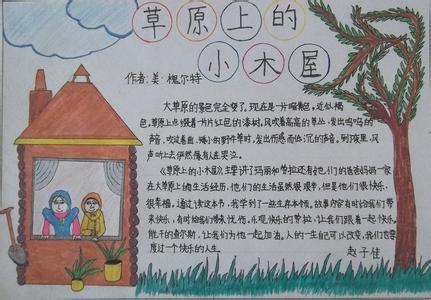 草原上的
小木屋
作者:美·槐尔特
大草原的景色完全变了。现在是一片暗黄色,近似褐
色,草原上点缀着一片片红色的漆树,风吹着高高的草丛,发出呜呜的
声音,吹过卷曲、矮小的野牛草时,发出伤感而低沉的声音。到了夜里,风
声听上去仍然像有人在哭泣。
《草原上的小木屋》主要讲了玛丽和劳拉还有她们的爸爸妈妈一家
在大草原上的生活经历,他们的生活虽然艰辛,但是他们很快乐,
很幸福。通过读这本书,我学到了一些生存本领。故事内容有时给我们带
来快乐,有时给我们带来忧伤,乐观快乐的劳拉,让我们跟着一起快乐。
能干的查尔斯,让我们为他一起加油。人的一生自己可以改变,我们应该
度过一个快乐的人生。
赵子佳